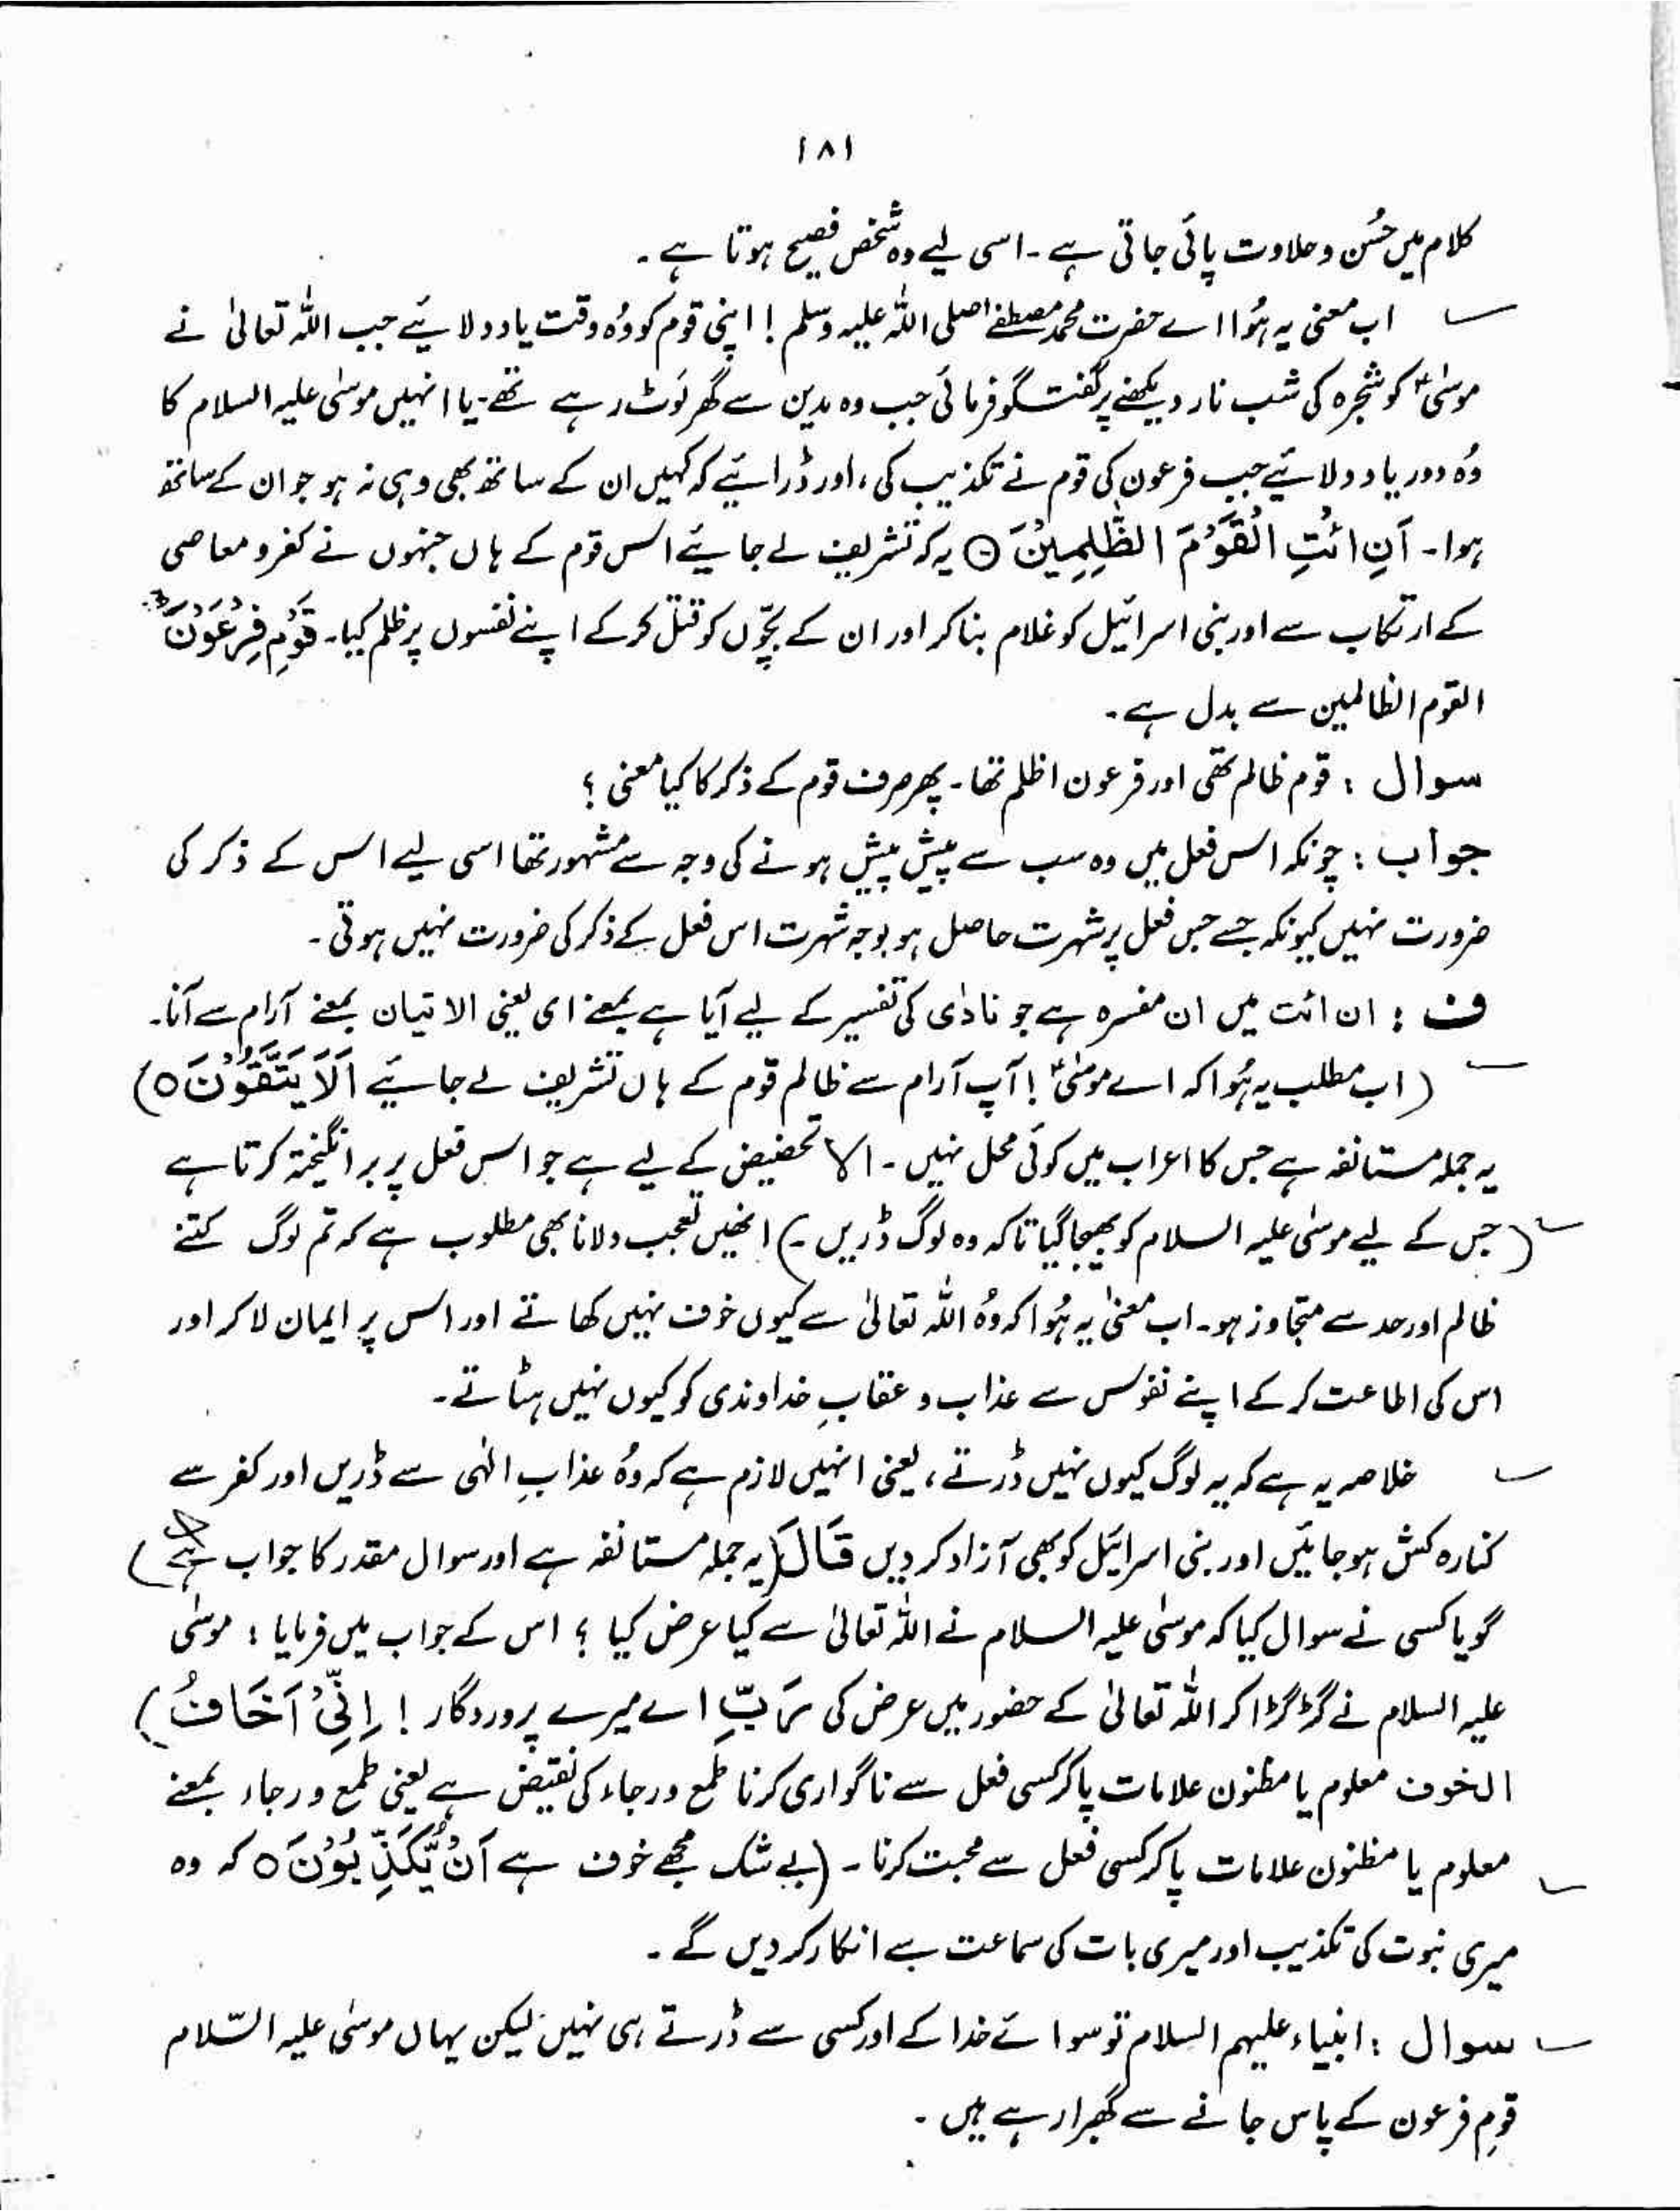 ۱۸۱
کلام میں حُسن و حلاوت پائی جاتی ہے ۔ اسی لیے وہ شخص فصیح ہوتا ہے ۔
اب معنی یہ ہُوا اے حضرت محمد مصطفےٰ صلی اللہ علیہ وسلم ! اپنی قوم کو وُہ وقت یاد دلائیے جب اللہ تعالیٰ نے
موسٰیؑ کو شجرہ کی شب نار دیکھنے پر گفتگو فرمائی جب وہ مدین سے گھر لَوٹ رہے تھے ۔ یا انہیں موسٰی علیہ السلام کا
وُہ دور یاد دلائیے جب فرعون کی قوم نے تکذیب کی ، اور ڈرائیے کہ کہیں ان کے ساتھ بھی وہی نہ ہو جو ان کے ساتھ
ہوا ۔ اَنِ ائْتِ الْقَوْمَ الظّٰلِمِیْنَ ○ یہ کہ تشریف لے جائیے اس قوم کے ہاں جنہوں نے کفر و معاصی
کے ارتکاب سے اور بنی اسرائیل کو غلام بنا کر اور ان کے بچّوں کو قتل کر کے اپنے نفسوں پر ظلم کیا ۔ قَوْمِ فِرْعَوْنَ
القوم الظالمین سے بدل ہے ۔
سوال : قوم ظالم تھی اور فرعون اظلم تھا ۔ پھر صرف قوم کے ذکر کا کیا معنی ؟
جواب : چونکہ اس فعل میں وہ سب سے پیش پیش ہونے کی وجہ سے مشہور تھا اسی لیے اس کے ذکر کی
ضرورت نہیں کیونکہ جسے جس فعل پر شہرت حاصل ہو بوجہ شہرت اس فعل کے ذکر کی ضرورت نہیں ہوتی ۔
ف : ان ائت میں ان مفسرہ ہے جو نادٰی کی تفسیر کے لیے آیا ہے بمعنے ای یعنی الاتیان بمعنے آرام سے آنا ۔
( اب مطلب یہ ہُوا کہ اے موسٰیؑ ! آپ آرام سے ظالم قوم کے ہاں تشریف لے جائیے اَلَا یَتَّقُوْنَ ○ )
یہ جملہ مستانفہ ہے جس کا اعراب میں کوئی محل نہیں ۔ الا تحضیض کے لیے ہے جو اس فعل پر برانگیختہ کرتا ہے
( جس کے لیے موسٰی علیہ السلام کو بھیجا گیا تاکہ وہ لوگ ڈریں ۔ ) انھیں تعجب دلانا بھی مطلوب ہے کہ تم لوگ کتنے
ظالم اور حد سے متجاوز ہو ۔ اب معنٰی یہ ہُوا کہ وُہ اللہ تعالیٰ سے کیوں خوف نہیں کھاتے اور اس پر ایمان لا کر اور
اس کی اطاعت کر کے اپنے نفوس سے عذاب و عقابِ خداوندی کو کیوں نہیں ہٹاتے ۔
خلاصہ یہ ہے کہ یہ لوگ کیوں نہیں ڈرتے ، یعنی انہیں لازم ہے کہ وُہ عذابِ الٰہی سے ڈریں اور کفر سے
کنارہ کش ہو جائیں اور بنی اسرائیل کو بھی آزاد کر دیں قَالَ ( یہ جملہ مستانفہ ہے اور سوال مقدر کا جواب ہے )
گویا کسی نے سوال کیا کہ موسٰی علیہ السلام نے اللہ تعالیٰ سے کیا عرض کیا ؟ اس کے جواب میں فرمایا : موسٰی
علیہ السلام نے گڑگڑا کر اللہ تعالیٰ کے حضور میں عرض کی رَبِّ اے میرے پروردگار ! اِنِّیْۤ اَخَافُ )
الخوف معلوم یا مظنون علامات پا کر کسی فعل سے ناگواری کرنا طمع و رجاء کی نقیض ہے یعنی طمع و رجاء بمعنے
معلوم یا مظنون علامات پا کر کسی فعل سے محبت کرنا ۔ ( بے شک مجھے خوف ہے اَنْ یُّكَذِّبُوْنَ ○ کہ وہ
میری نبوت کی تکذیب اور میری بات کی سماعت سے انکار کر دیں گے ۔
سوال : انبیاء علیہم السلام تو سوائے خدا کے اور کسی سے ڈرتے ہی نہیں لیکن یہاں موسٰی علیہ السّلام
قومِ فرعون کے پاس جانے سے گھبرا رہے ہیں ۔